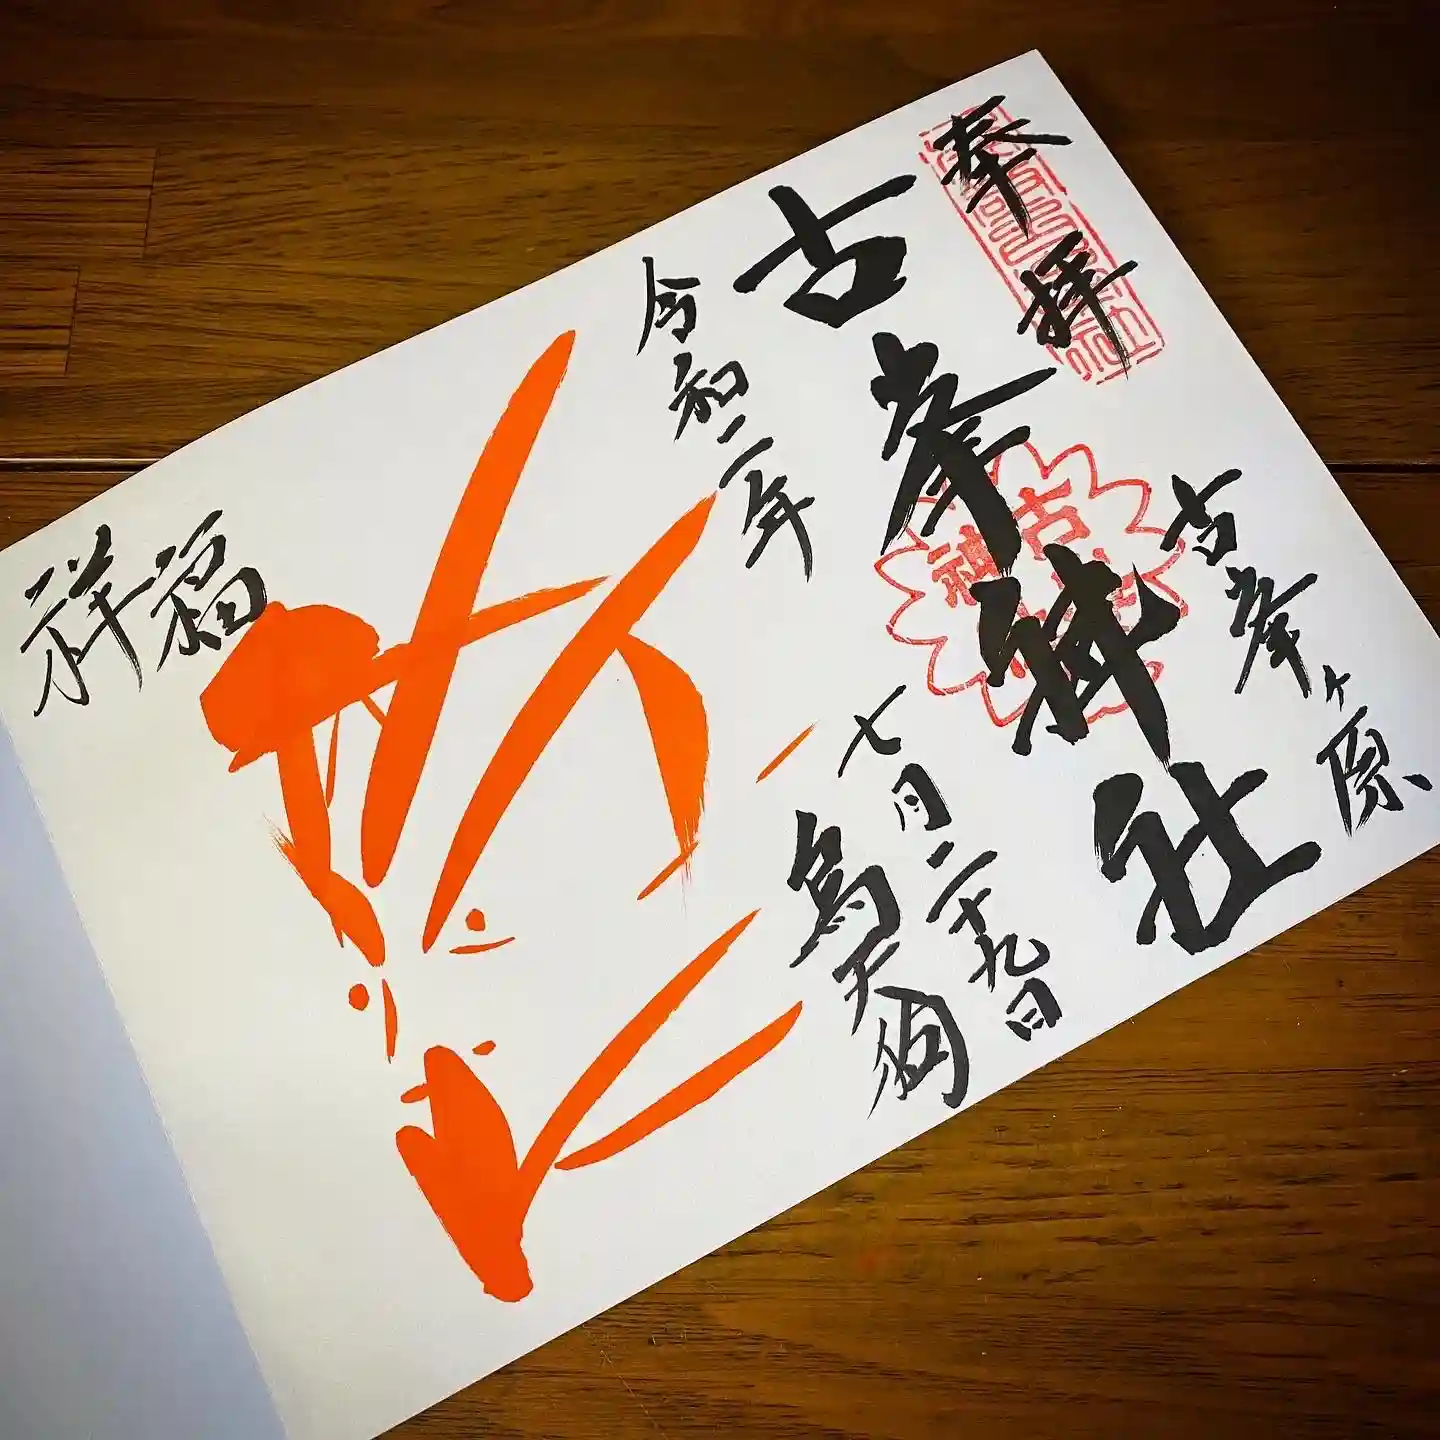 奉拝
古峯ヶ原
古峯神社
古峯神社
令和二年
七月二十九日
烏天狗
福
祥